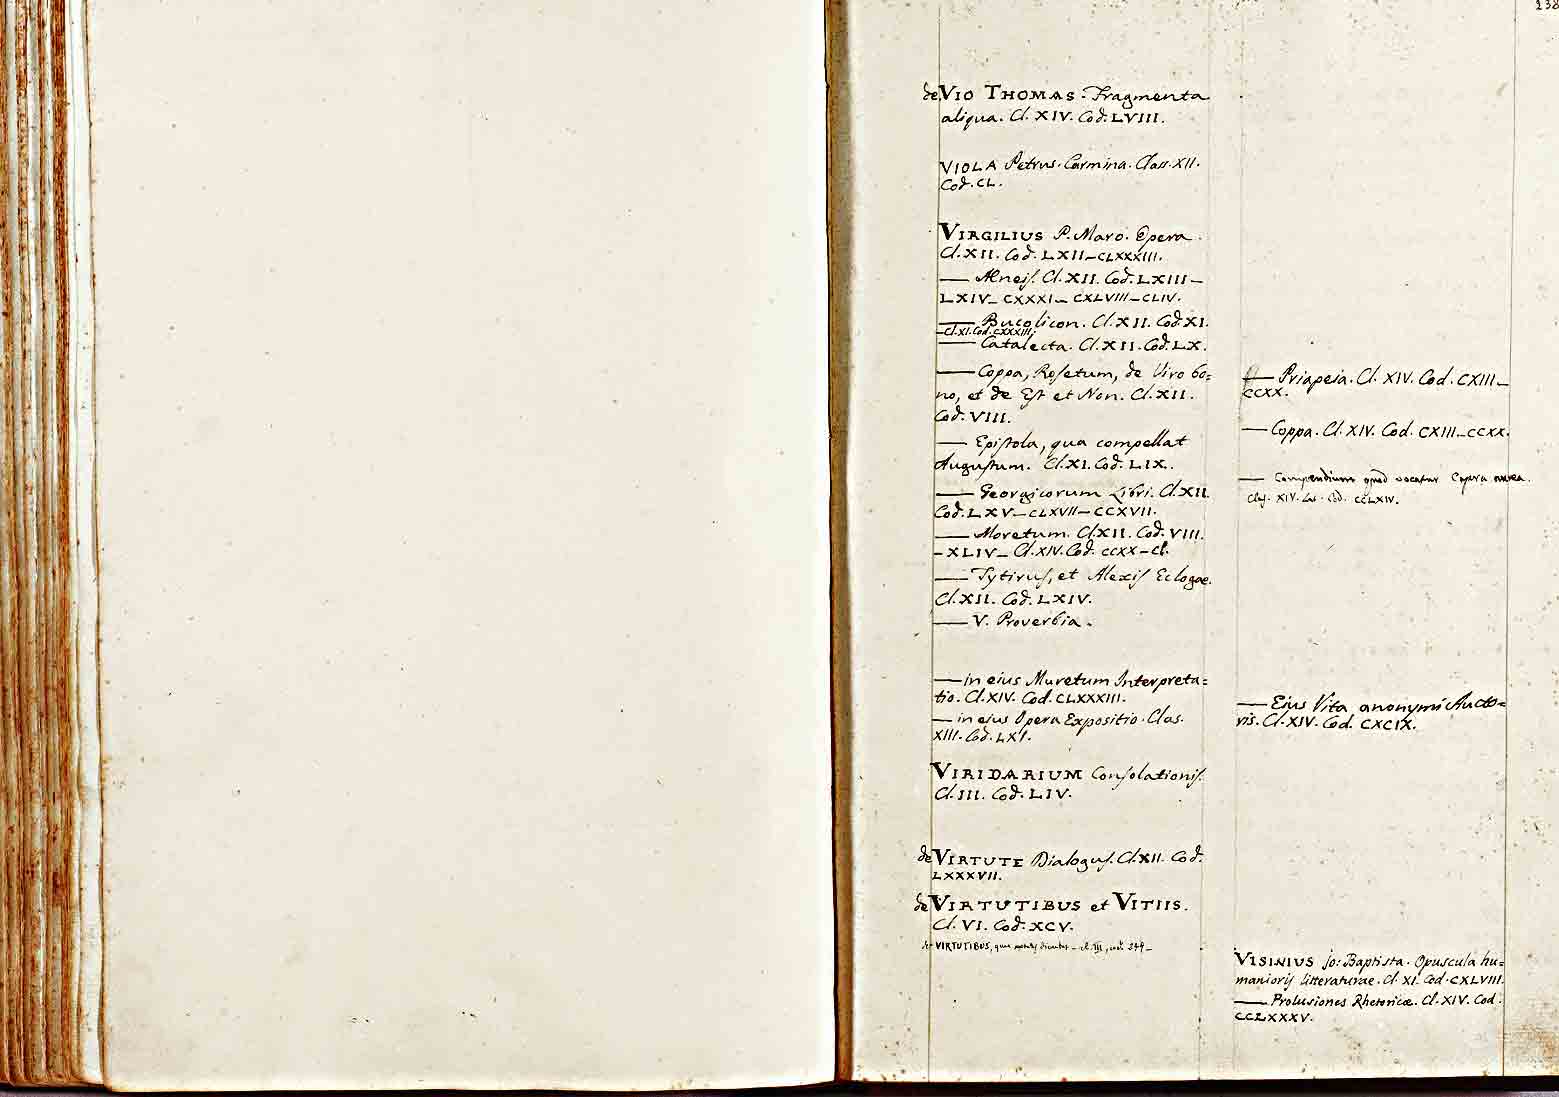 238
de VIO THOMAS. Fragmenta
aliqua. Cl. XIV. Cod. LVIII.
VIOLA Petrus. Carmina. Class. XII.
Cod. CL.
VIRGILIUS P. Maro. Opera.
Cl. XII. Cod. LXII–CLXXXIII.
— Æneis. Cl. XII. Cod. LXIII–
LXIV– CXXXI– CXLVIII–CLIV.
— Bucolicon. Cl. XII. Cod. XI.
–Cl. XI. Cod. CXXXIII.
— Catalecta. Cl. XII. Cod. LX.
— Coppa, Rosetum, de Viro bo=
no, et de Est et Non. Cl. XII.
Cod. VIII.
— Epistola, qua compellat
Augustum. Cl. XI. Cod. LIX.
— Georgicorum Libri. Cl. XII.
Cod. LXV–CLXVII–CCXVII.
— Moretum. Cl. XII. Cod. VIII.
–XLIV– Cl. XIV. Cod. CCXX–
— Tytirus, et Alexis Eclogae.
Cl. XII. Cod. LXIV.
— V. Proverbia.
— in eius Muretum Interpreta=
tio. Cl. XIV. Cod. CLXXXIII.
— in ejus Opera Expositio. Clas.
XIII. Cod. LXI.
VIRIDARIUM Consolationis.
Cl. III. Cod. LIV.
de VIRTUTE Dialogus. Cl. XII. Cod.
LXXXVII.
de VIRTUTIBUS et VITIIS.
Cl. VI. Cod. XCV.
de VIRTUTIBUS, quae dicuntur – cl. III, cod.
— Priapeia. Cl. XIV. Cod. CXIII–
CCXX.
— Coppa. Cl. XIV. Cod. CXIII–CCXX.
— Compendium quod vocatur Copia
Clas. XIV. Lat. Cod. CCLXIV.
— Eius Vita anonymi Aucto=
ris. Cl. XIV. Cod. CXCIX.
VISINIUS Jo: Baptista. Opuscula hu=
manioris litteraturae. Cl. XI. Cod. CXLVIII.
— Prolusiones Rhetoricæ. Cl. XIV. Cod.
CCLXXXV.